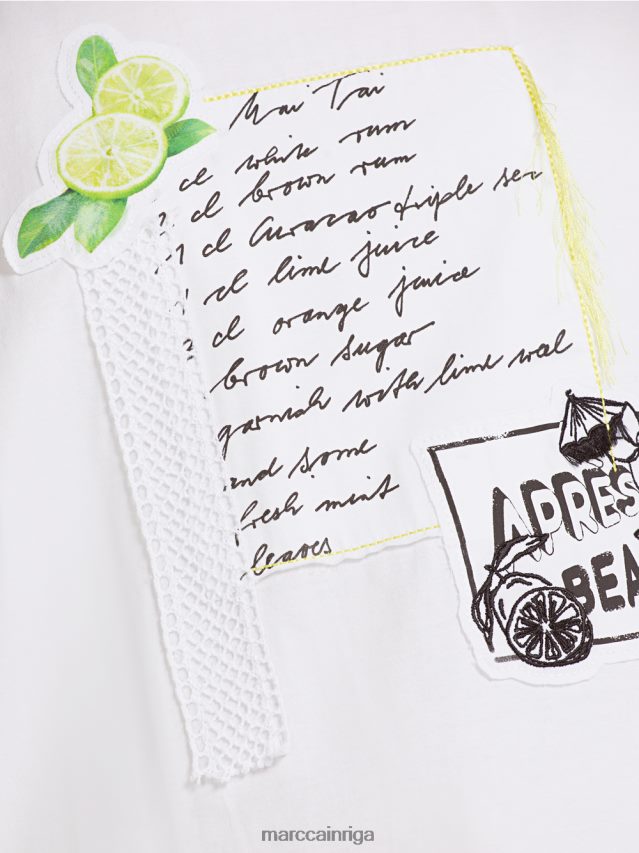 Mai Tai
cl white rum
cl brown rum
1 cl Curacao triple sec
cl lime juice
cl orange juice
brown sugar
garnish with lime
and some
fresh mint
leaves
APRES
BEA
marccainriga